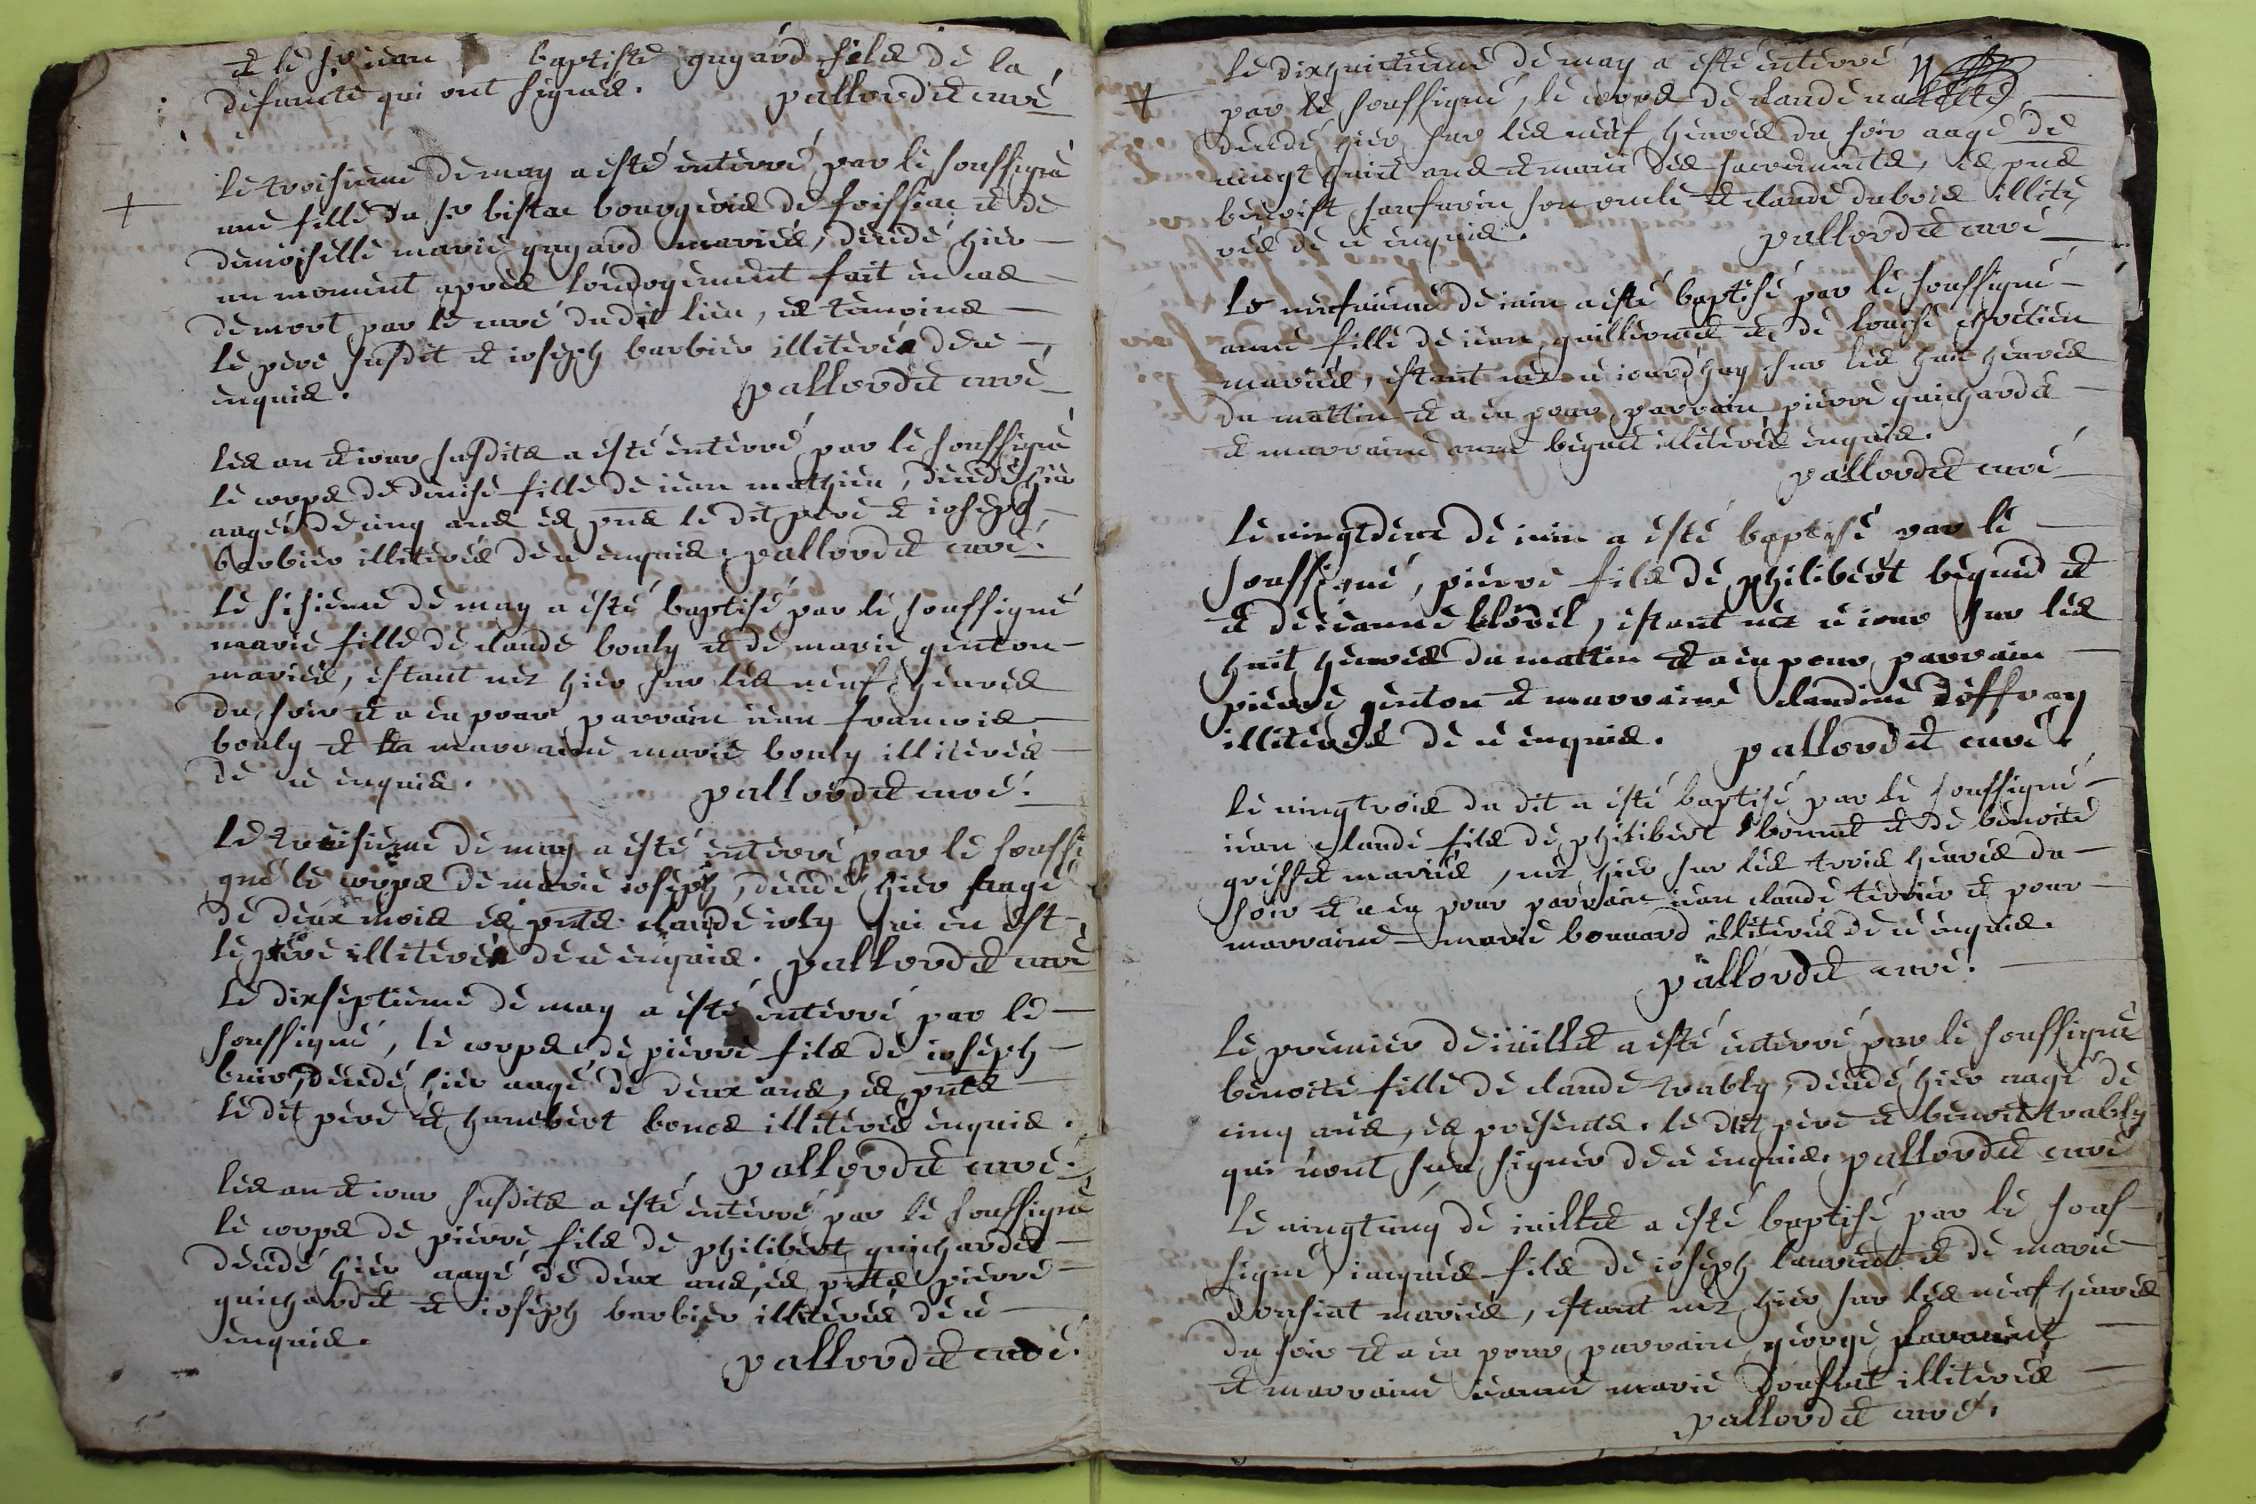 et le sr jean baptiste guyard fils de la
defuncte qui ont signés. pallordet curé
le troisieme de may a esté enterré par le soussigné
une fille du sr bistac bourgeois de foissiac et de
demoiselle marie guyard mariés, decedé hier
un moment apres londoyement fait en cas
de mort par le curé dudit lieu, es temoins
le pere susdit et joseph barbier illiterés de ce
enquis. pallordet curé
les an et jour susdits a esté enterré par le soussigné
le corps de denise fille de jean mathieu, decedé hier
aagée de cinq ans es pns le dit pere et joseph
barbier illiterés de ce enquis. pallordet curé.
le sisieme de may a esté baptisé par le soussigné
marie fille de claude bouly et de marie genton
mariés, estant née hier sur les neuf heures
du soir et a eu pour parrain jean francois
bouly et sa marraine marie bouly illiterés
de ce enquis. pallordet curé.
le treisieme de may a esté enterré par le soussi
gné le corps de marie joseph, decedé hier aagé
de deux mois es pnts claude joly qui en est
le pere illiteré de ce enquis. pallordet curé
le dixseptieme de may a esté enterré par le
soussigné, le corps de pierre fils de joseph
decedé hier aagé de deux ans, es pnts
le dit pere et humbert bons illiterés enquis.
pallordet curé.
les an et jour susdits a esté enterré par le soussigné
le corps de pierre fils de philibert guichardet
decedé hier aagé de deux ans, es pnts pierre
guichardet et joseph barbier illiterés de ce
enquis. pallordet curé.
le dixhuictieme de may a esté enterré
par le soussigné, le corps de claude
decedé hier sur les neuf heures du soir aagé de
vingt huict ans et muni des sacrements, es pns
benoist son oncle et claude dubois illite
rés de ce enquis. pallordet curé
le neufvieme de juin a esté baptisé par le soussigné
anne fille de jean guillermet et de louise chretien
mariés, estant née ce jourdhuy sur les huit heures
du mattin et a eu pour parrain pierre guichardet
et marraine anne beguet illiterés enquis.
pallordet curé
le vingtdeux de juin a esté baptisé par le
soussigné, pierre fils de philibert beguet et
et de jeanne blodel, estant née ce jour sur les
huit heures du mattin et a eu pour parrain
pierre genton et marraine claudine joffray
illiterés de ce enquis. pallordet curé.
le vingtrois du dit a esté baptisé par le soussigné
jean claude fils de philibert bonnet et de benoite
grisset mariés, née hier sur les trois heures du
soir et a eu pour parrain jean claude terrier et pour
marraine marie bouvard illiterés de ce enquis.
pallordet curé.
le premier de juillet a esté enterré par le soussigné
benoite fille de claude trably, decedé hier aagé de
cinq ans, es presents le dit pere et benoit trably
qui n'ont sçeu signer de ce enquis. pallordet curé
le vingtcinq de juillet a esté baptisé par le sous
signé, jacques fils de joseph laurent et de marie
donsuat mariés, estant née hier sur les neuf heures
du soir et a eu pour parrain george laurent
et marraine jeanne marie donsuat illiterés
pallordet curé.